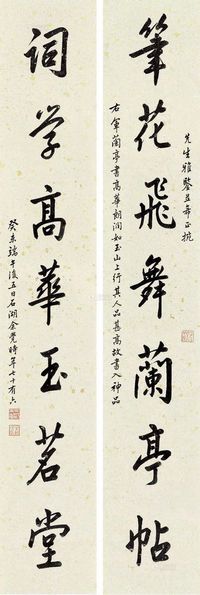 筆花飛舞蘭亭帖
先生雅鑒并希正捥
右軍蘭亭書高華朗潤如玉山上行其人品甚高故書入神品
詞学高華玉茗堂
癸未端午後五日石湖余覺時年七十有六